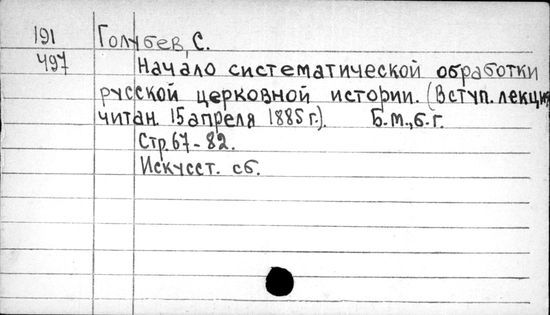 191 Голубев, С.
497 Начало систематической обработки
русской церковной истории. (Вступ. лекция,
читан. 15 апреля 1885 г.). Б.м., б.г.
Стр. 67-82.
Искусст. сб.